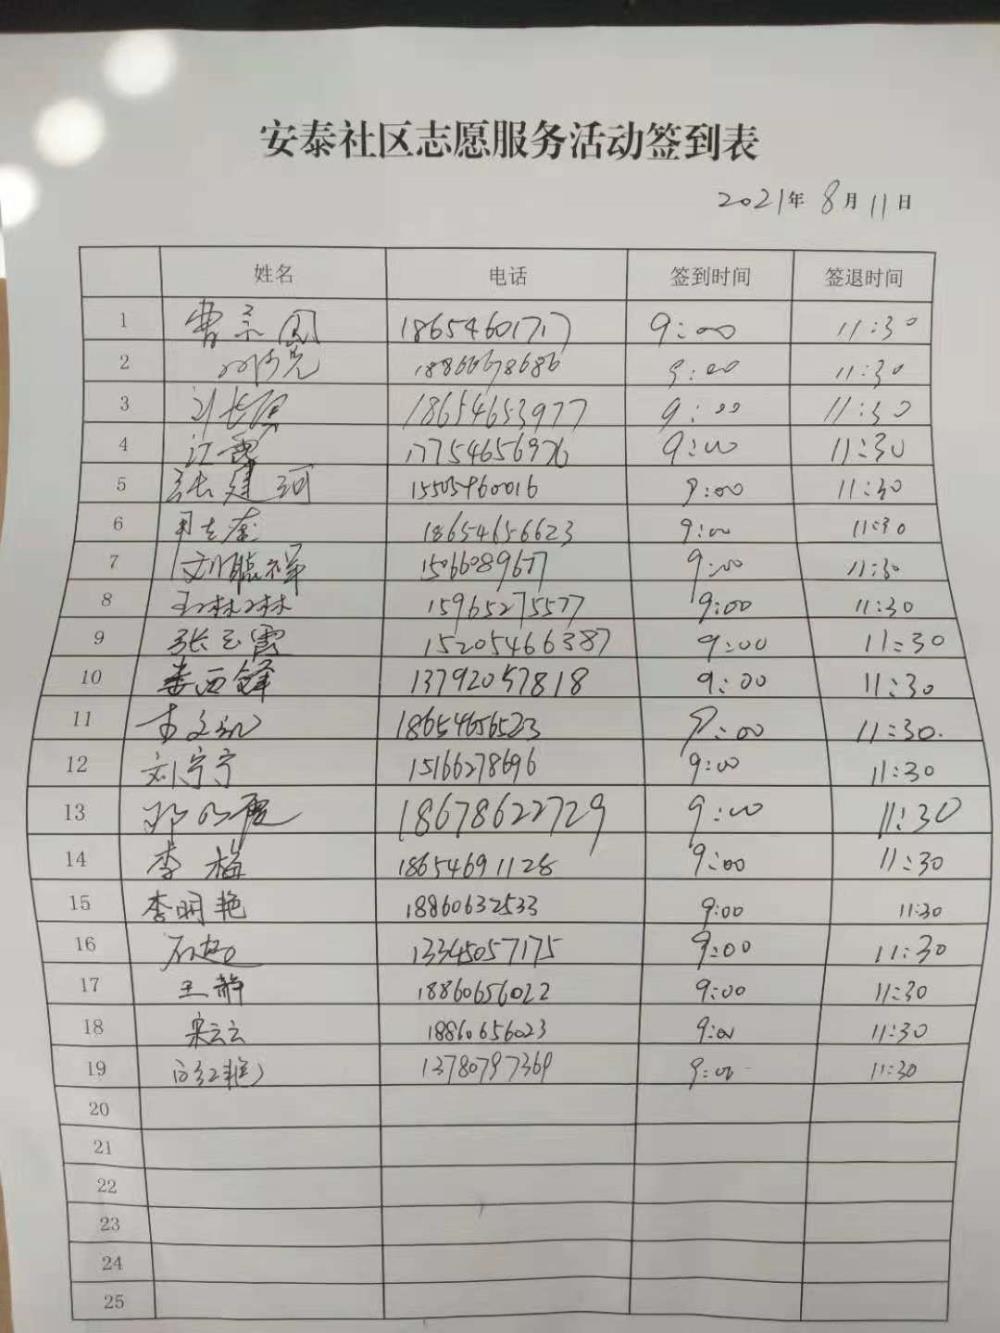 安泰社区志愿服务活动签到表
2021年 8月 11日
姓名 电话 签到时间 签退时间
1 曹 18654601717 9:00 11:30
2 18866678686 9:00 11:30
3 刘长 18654653977 9:00 11:30
4 江 17754656976 9:00 11:30
5 张建河 15505460016 9:00 11:30
6 18654656623 9:00 11:30
7 刘临祥 15066089677 9:00 11:30
8 王林林 15965275577 9:00 11:30
9 张玉霞 15205466387 9:00 11:30
10 娄西锋 13792057818 9:00 11:30
11 李文凯 18654656523 9:00 11:30.
12 刘宁宁 15166278696 9:00 11:30
13 18678622729 9:00 11:30
14 李梅 18654691128 9:00 11:30
15 李明艳 18860632533 9:00 11:30
16 13345057175 9:00 11:30
17 王静 18860656022 9:00 11:30
18 宋云云 18860656023 9:00 11:30
19 13780797369 9:00 11:30
20
21
22
23
24
25